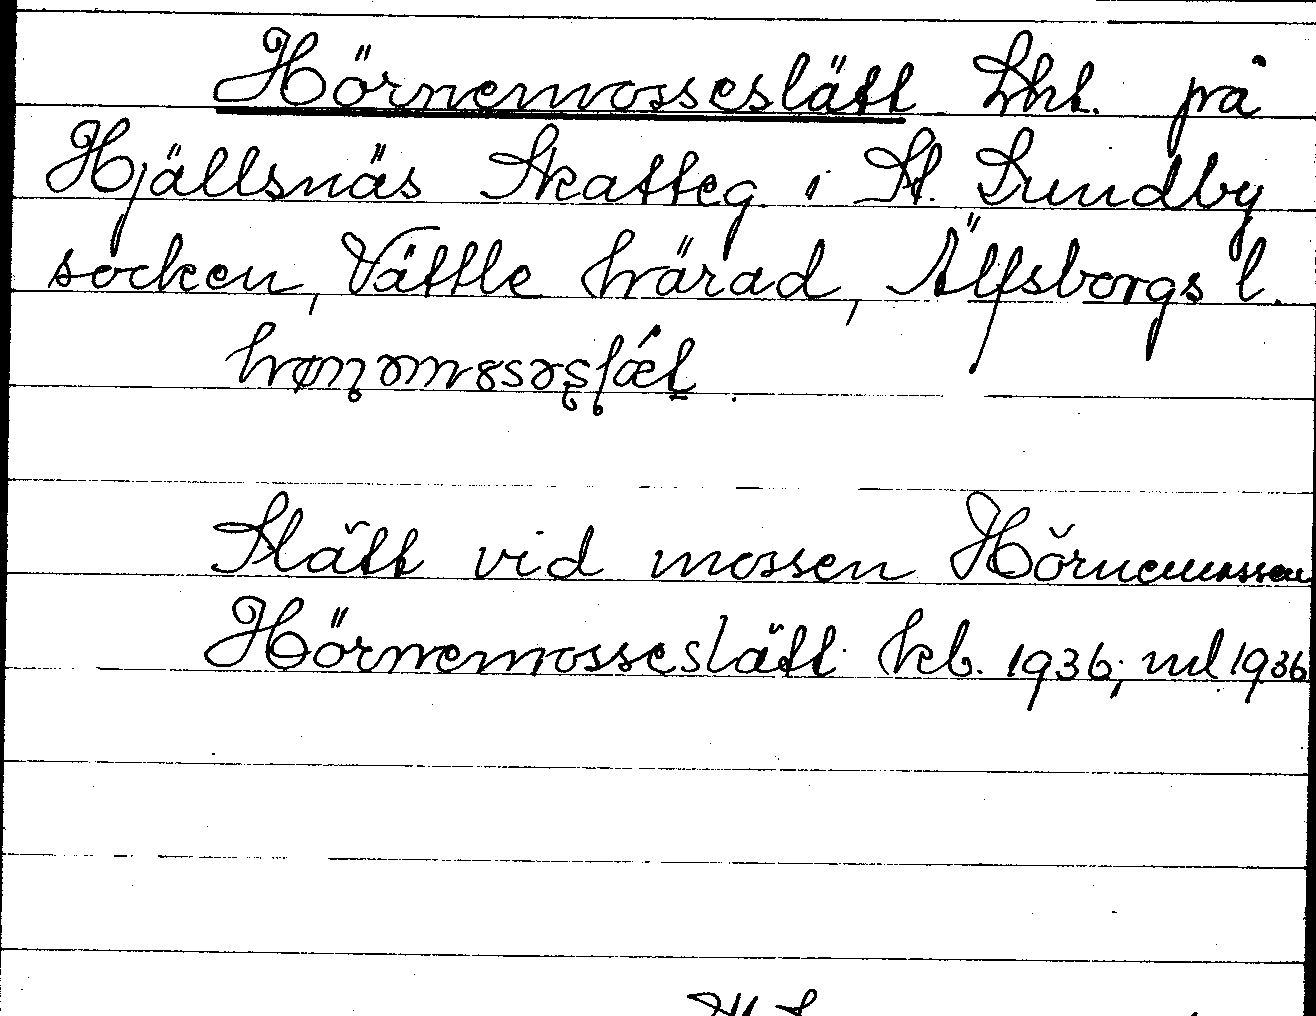 Hörnemosseslätt Lht. på
Hjällsnäs Skatteg. i St. Lundby
socken, Vättle härad, Älfsborgs l.
Slätt vid mossen Hörnemossen
Hörnemosseslätt kb. 1936; ul 1936